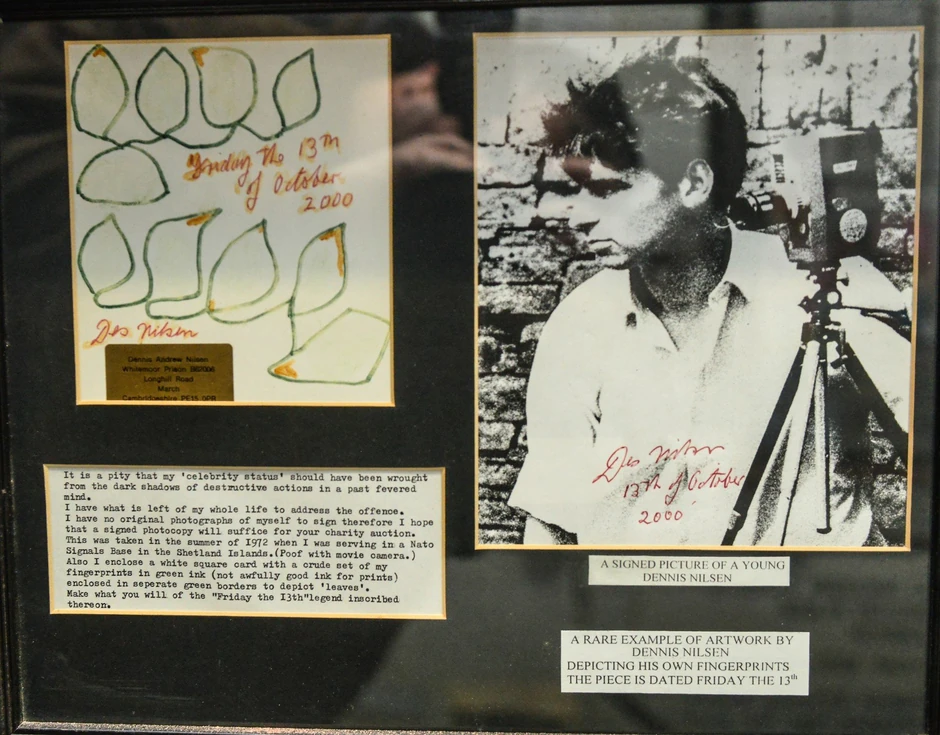 Friday the 13th
of October
2000
Des Nilsen
Dennis Andrew Nilsen
Whitemoor Prison B62006
Longhill Road
March
Cambridgeshire PE15 0PR
It is a pity that my 'celebrity status' should have been wrought
from the dark shadows of destructive actions in a past fevered
mind.
I have what is left of my whole life to address the offence.
I have no original photographs of myself to sign therefore I hope
that a signed photocopy will suffice for your charity auction.
This was taken in the summer of 1972 when I was serving in a Nato
Signals Base in the Shetland Islands.(Poof with movie camera.)
Also I enclose a white square card with a crude set of my
fingerprints in green ink (not awfully good ink for prints)
enclosed in seperate green borders to depict 'leaves'.
Make what you will of the "Friday the I3th"legend inscribed
thereon.
Des Nilsen
13th of October
2000
A SIGNED PICTURE OF A YOUNG
DENNIS NILSEN
A RARE EXAMPLE OF ARTWORK BY
DENNIS NILSEN
DEPICTING HIS OWN FINGERPRINTS
THE PIECE IS DATED FRIDAY THE 13th